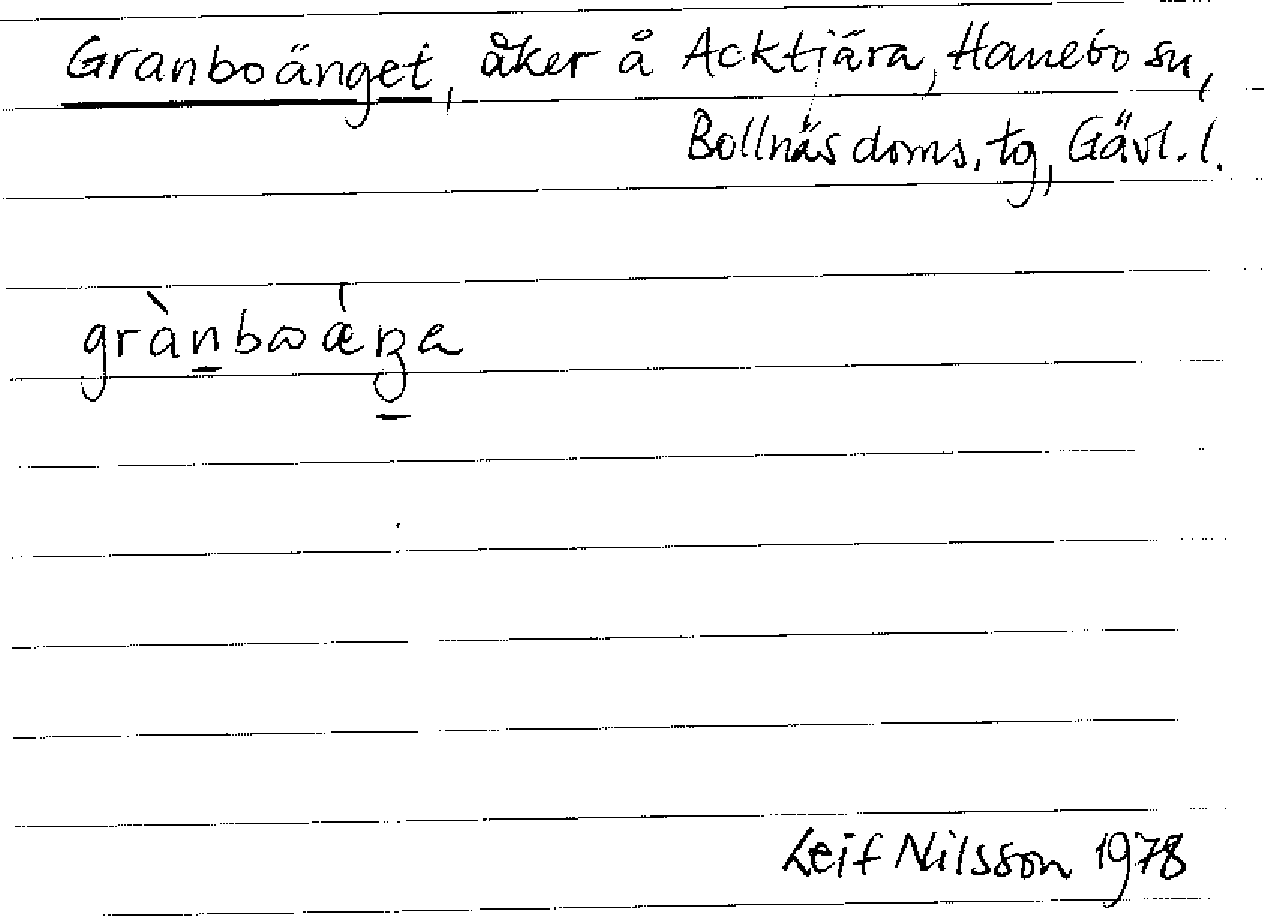 Granboänget, åker å Acktjära, Hanebo sn,
Bollnäs doms. tg, Gävl. l.
Leif Nilsson 1978